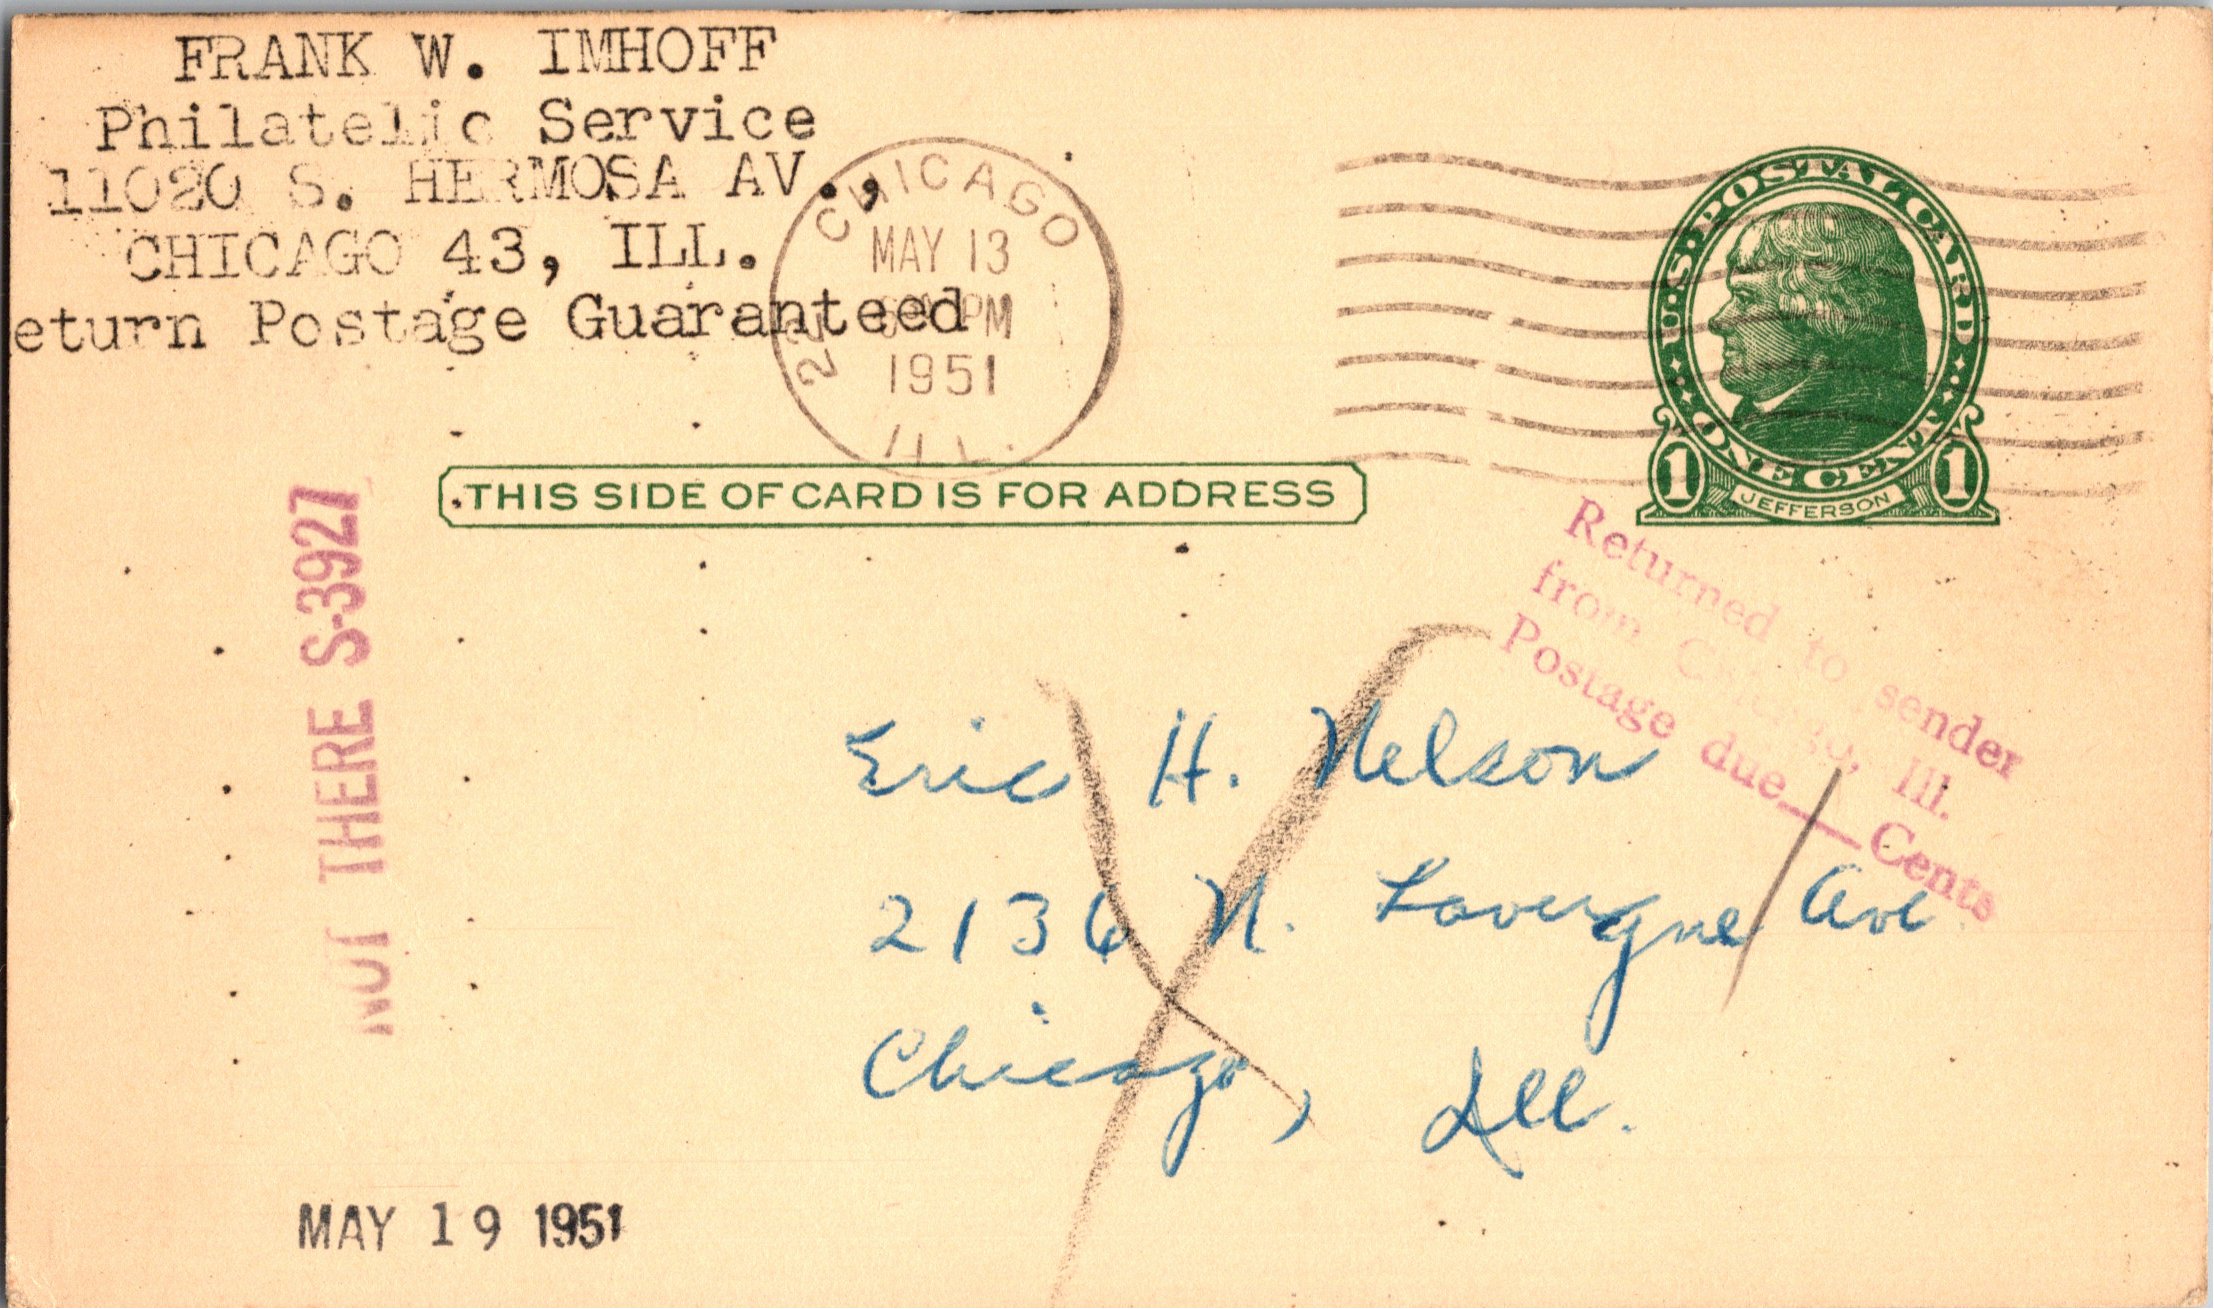 FRANK W. IMHOFF
Philatelic Service
11020 S. HERMOSA AV.,
CHICAGO 43, ILL.
eturn Postage Guaranteed
CHICAGO
MAY 13
PM
1951
ILL.
U.S. POSTAL CARD
ONE CENT
1 JEFFERSON 1
THIS SIDE OF CARD IS FOR ADDRESS
NOT THERE S-3927
Returned to sender
from Chicago, Ill.
Postage due___Cents
Eric H. Nelson
2136 N. Lavergne Ave
Chicago, Ill.
MAY 19 1951